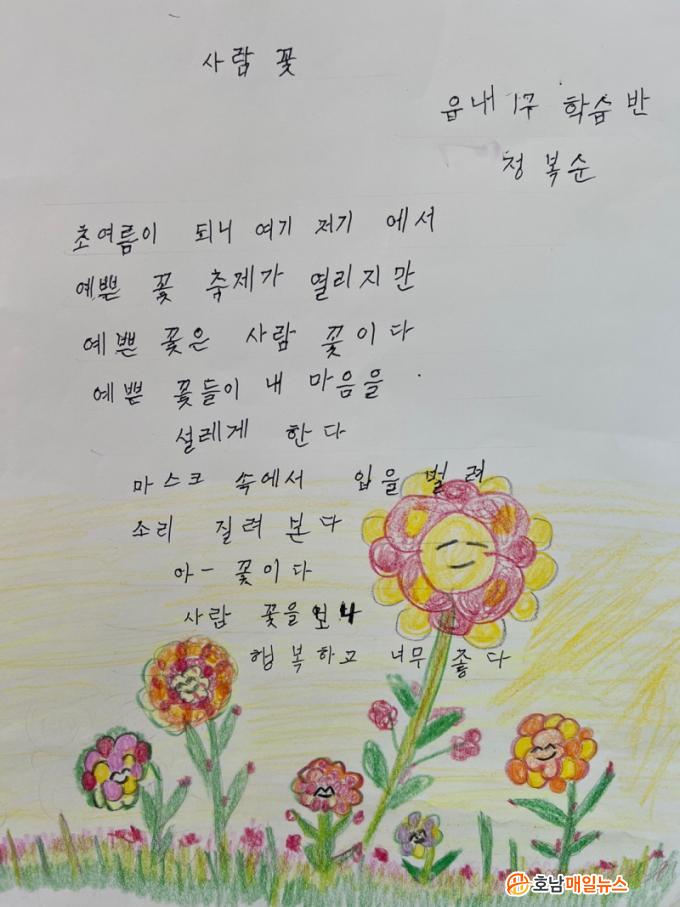 사람 꽃
읍내 1구 학습반
정복순
초여름이 되니 여기 저기 에서
예쁜 꽃 축제가 열리지만
예쁜 꽃은 사람 꽃이다
예쁜 꽃들이 내 마음을
설레게 한다
마스크 속에서 입을 벌려
소리 질려 본다
아- 꽃이다
사람 꽃을 보니
행복하고 너무 좋다
호남매일뉴스